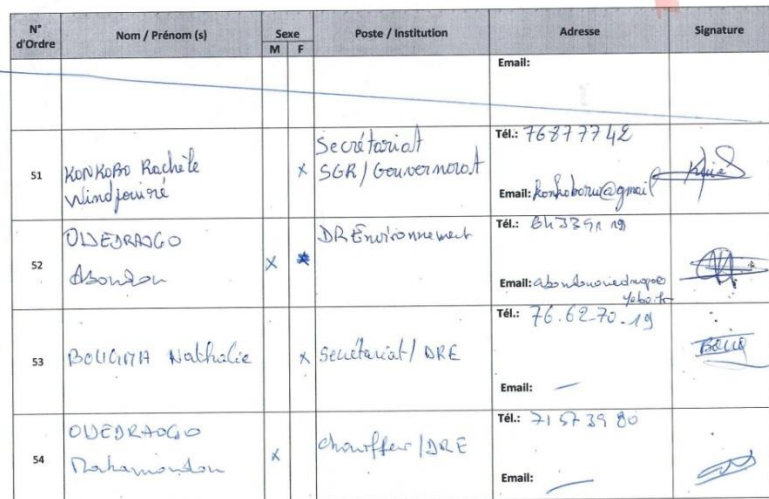 N° d'Ordre Nom / Prénom (s) Sexe Poste / Institution Adresse Signature
M F
Email:
51 KONKOBO Rachèle Windjouiré x Secrétariat SGR / Gouvernorat Tél.: 76877742
Email: konkoboru@gmail
52 OUEDRAOGO x DR Environnement Tél.:
Email:
53 BOUGMA Nathalie x Secrétariat / DRE Tél.: 76.62.70.19
Email: —
54 OUEDRAOGO Mahamoudou x chauffeur / DRE Tél.: 71 57 39 80
Email: —